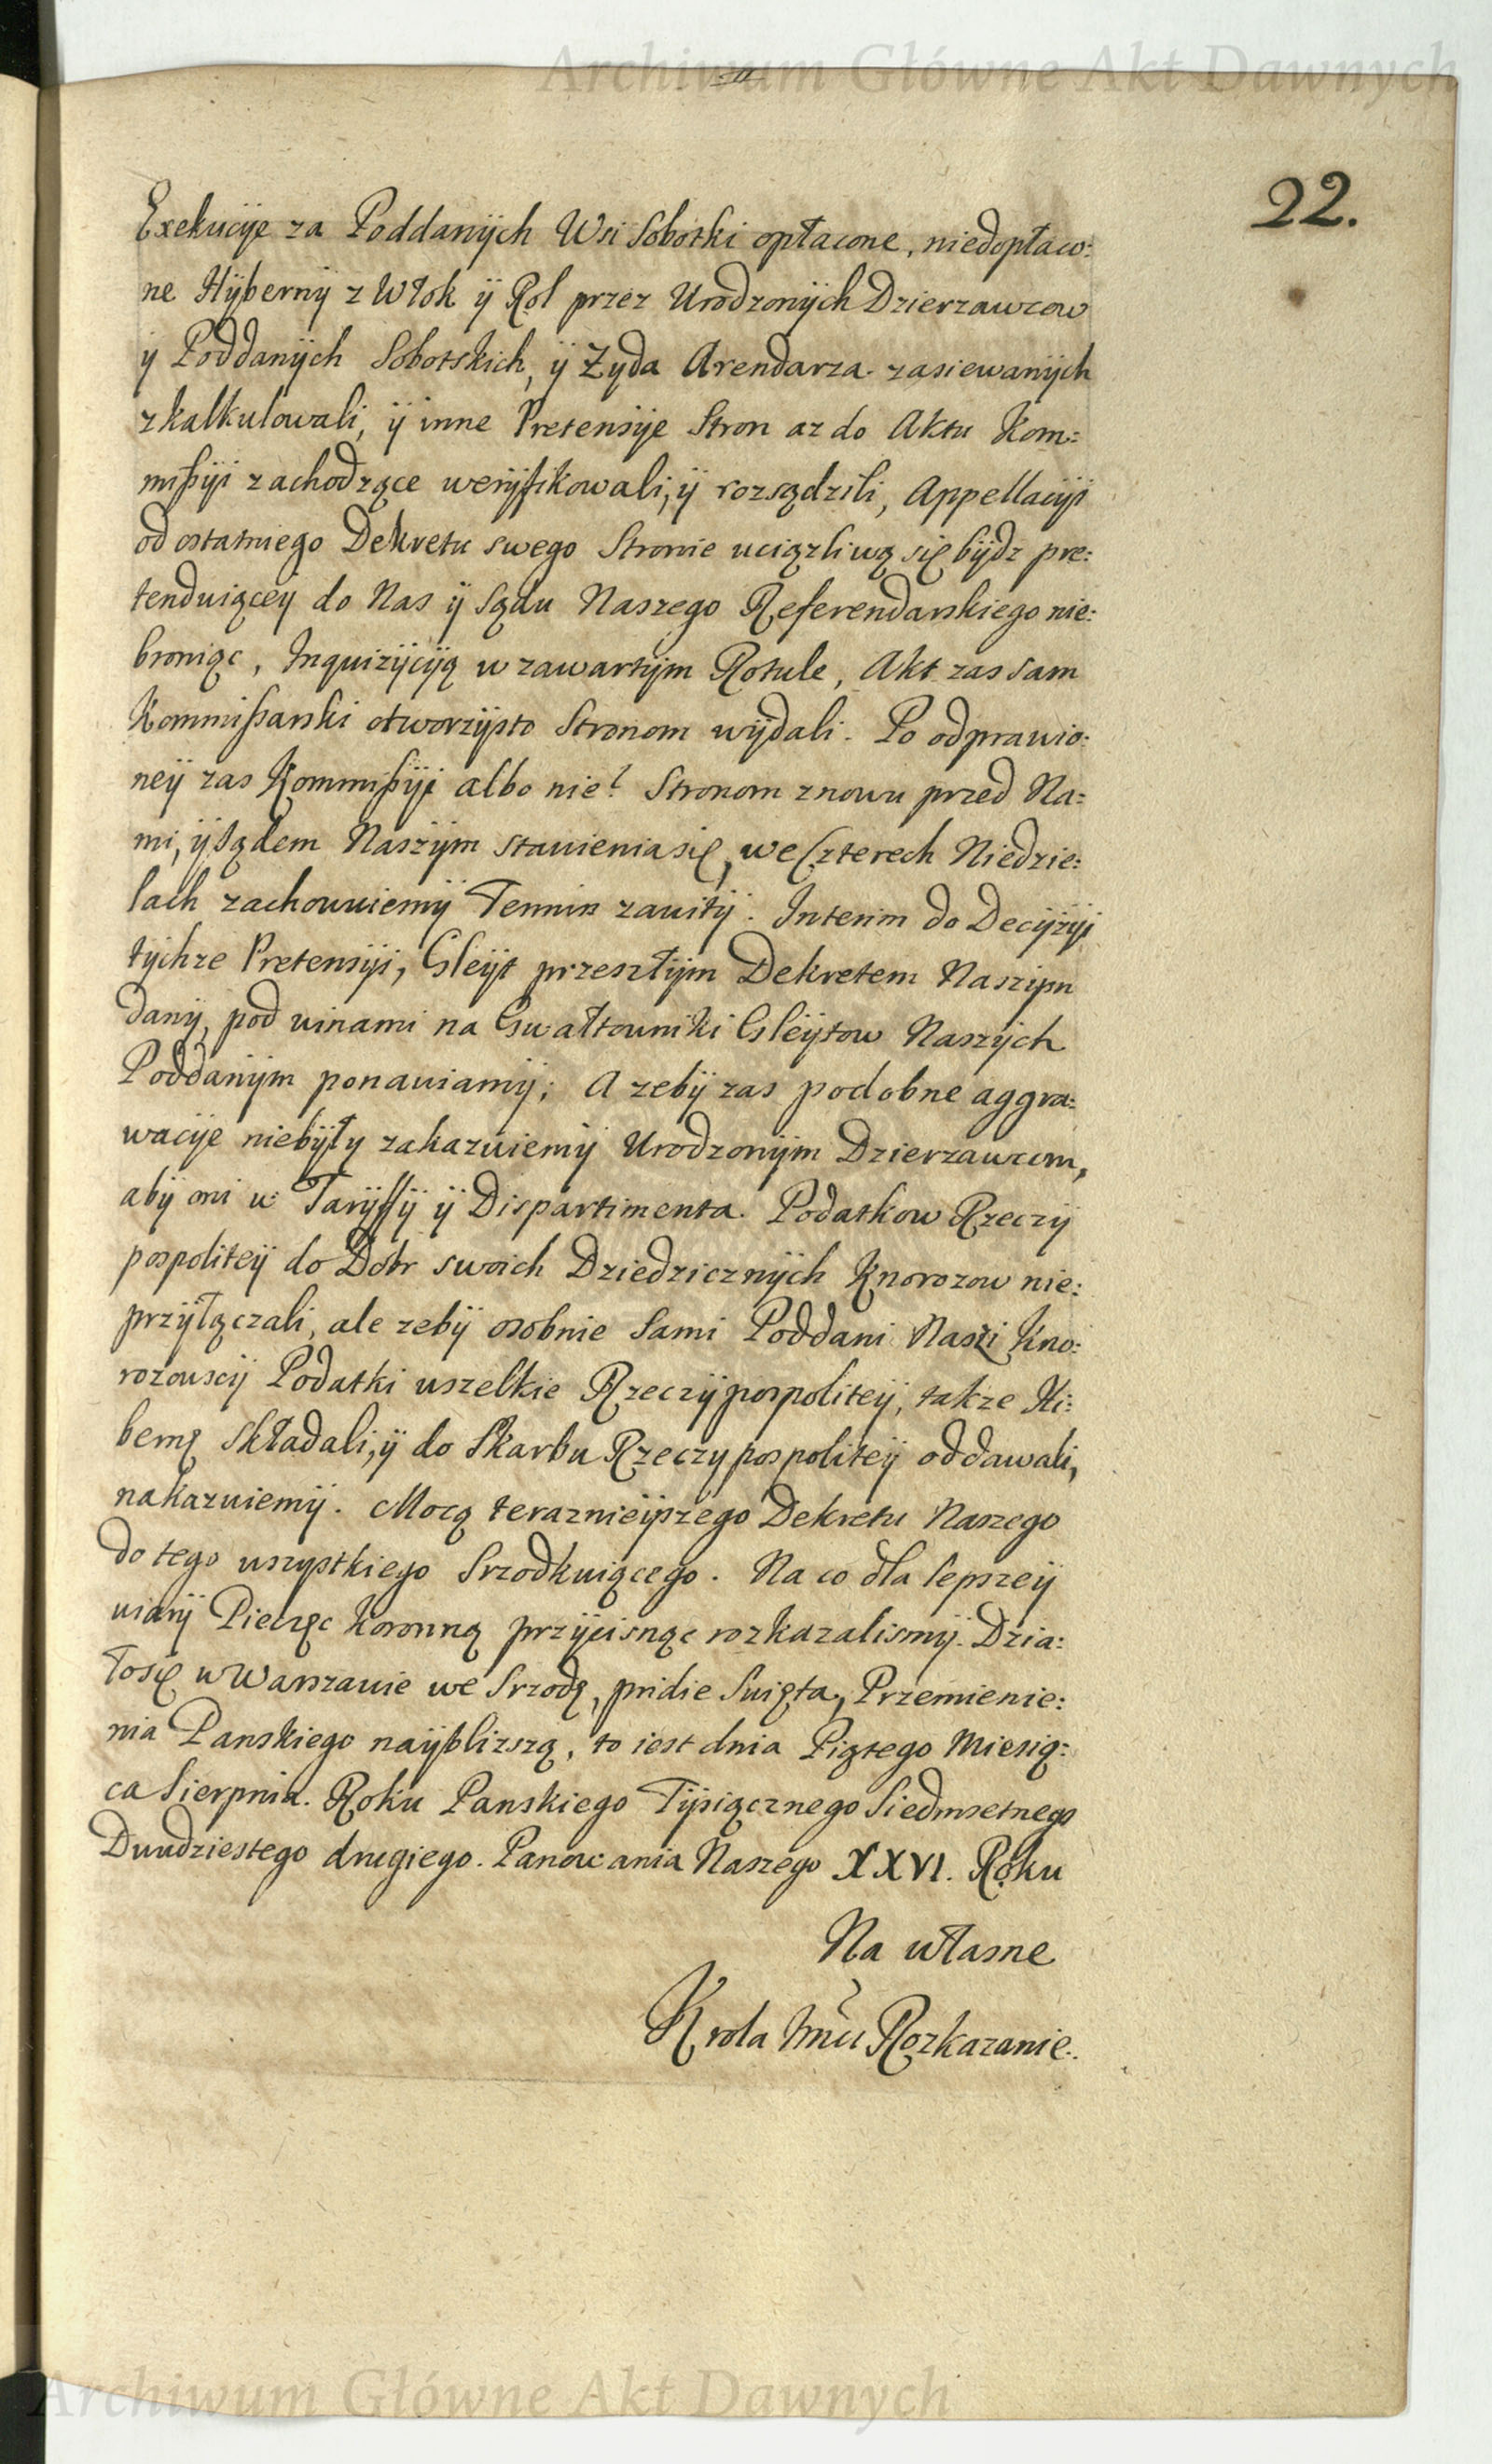 Archiwum Główne Akt Dawnych
22.
Exekucÿe za Poddanÿch Wsi Sobotki opłacone, niedopłaco:
ne Hÿbernÿ z Włok ÿ Rol przez Urodzonÿch Dzierzawcow
ÿ Poddanÿch Sobotskich, ÿ Zyda Arendarza zasiewanÿch
zkalkulowali, ÿ inne Pretensÿe Stron az do Aktu Kom:
mißÿi zachodzące werÿfikowali, ÿ rozsądzili, Appellacÿi
od ostatniego Dekretu swego Stronie uciązliwą się bÿdz pre:
tenduiąceÿ do Nas ÿ Sądu Naszego Referendarskiego nie:
broniąc, Inquizÿcÿą w zawartÿm Rotule, Akt zas sam
Kommißarski otworzÿsto Stronom wÿdali. Po odprawio:
neÿ zas Kommißÿi albo nie? Stronom znowu przed Na:
mi, ÿ Sądem Naszÿm stawienia się, we Czterech Niedzie:
lach zachowuiemÿ Termin zawitÿ. Interim do Decÿzÿi
tÿchze Pretensÿi, Gleÿt przeszłÿm Dekretem Naszÿm
danÿ, pod winami na Gwałtowniki Gleÿtow Naszÿch
Poddanÿm ponawiamÿ; A zebÿ zas podobne aggra:
wacÿe niebÿłÿ zakazuiemÿ Urodzonÿm Dzierzawcom,
abÿ oni w Tarÿffÿ ÿ Dispartimenta Podatkow Rzeczÿ
pospoliteÿ do Dobr swoich Dziedzicznÿch Knorozow nie:
przÿłączali, ale zebÿ osobnie Sami Poddani Naszi Kno:
rozowscÿ Podatki wszelkie Rzeczÿpospoliteÿ, takze Hi:
bernę składali, ÿ do Skarbu Rzeczypospoliteÿ oddawali,
nakazuiemÿ. Mocą teraznieÿszego Dekretu Naszego
do tego wszystkiego Srzodkuiącego. Na co dla lepszeÿ
wiarÿ Pieczęc Koronną przÿcisnąc rozkazalismÿ. Dzia:
łosię w Warszawie we Srzodę, pridie Swięta, Przemienie:
nia Panskiego naÿblizszą, to iest dnia Piątego Miesią:
ca Sierpnia. Roku Panskiego Tÿsiącznego Siedmsetnego
Dwudziestego drugiego. Panowania Naszego XXVI. Roku
Na własne
Krola Jmci Rozkazanie.
Archiwum Główne Akt Dawnych